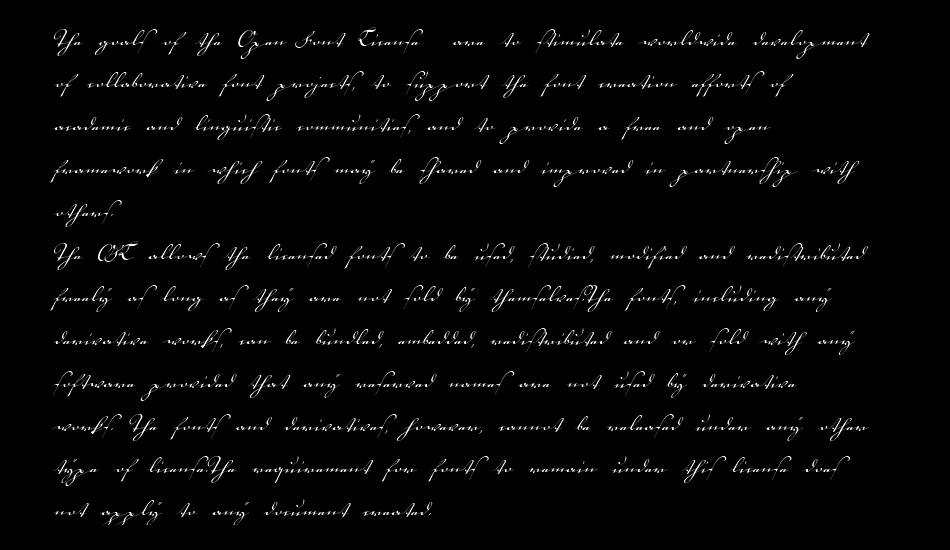 The goals of the Open Font License are to stimulate worldwide development
of collaborative font projects, to support the font creation efforts of
academic and linguistic communities, and to provide a free and open
framework in which fonts may be shared and improved in partnership with
others.
The OFL allows the licensed fonts to be used, studied, modified and redistributed
freely as long as they are not sold by themselves.The fonts, including any
derivative works, can be bundled, embedded, redistributed and or sold with any
software provided that any reserved names are not used by derivative
works. The fonts and derivatives, however, cannot be released under any other
type of license.The requirement for fonts to remain under this license does
not apply to any document created.